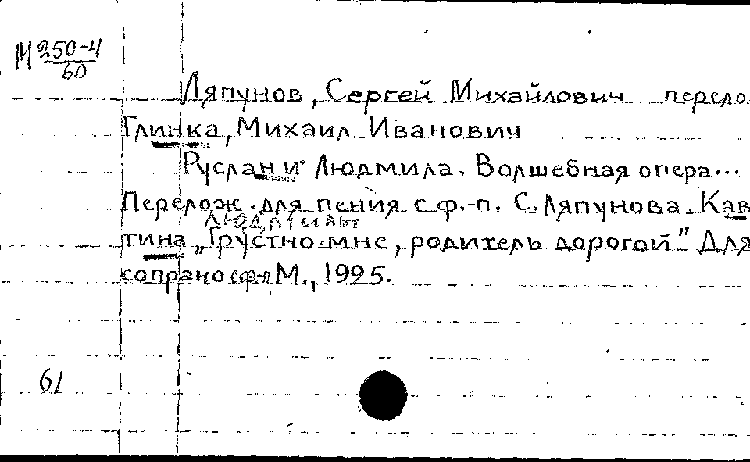 М 250-4
60
Ляпунов, Сергей Михайлович перело
Глинка, Михаил Иванович
Руслан и Людмила. Волшебная опера...
Перелож. для пения с ф.-п. С. Ляпунова Кав
Людмилы
тина „Грустно мне, родитель дорогой." Для
сопрано М., 1925.
61